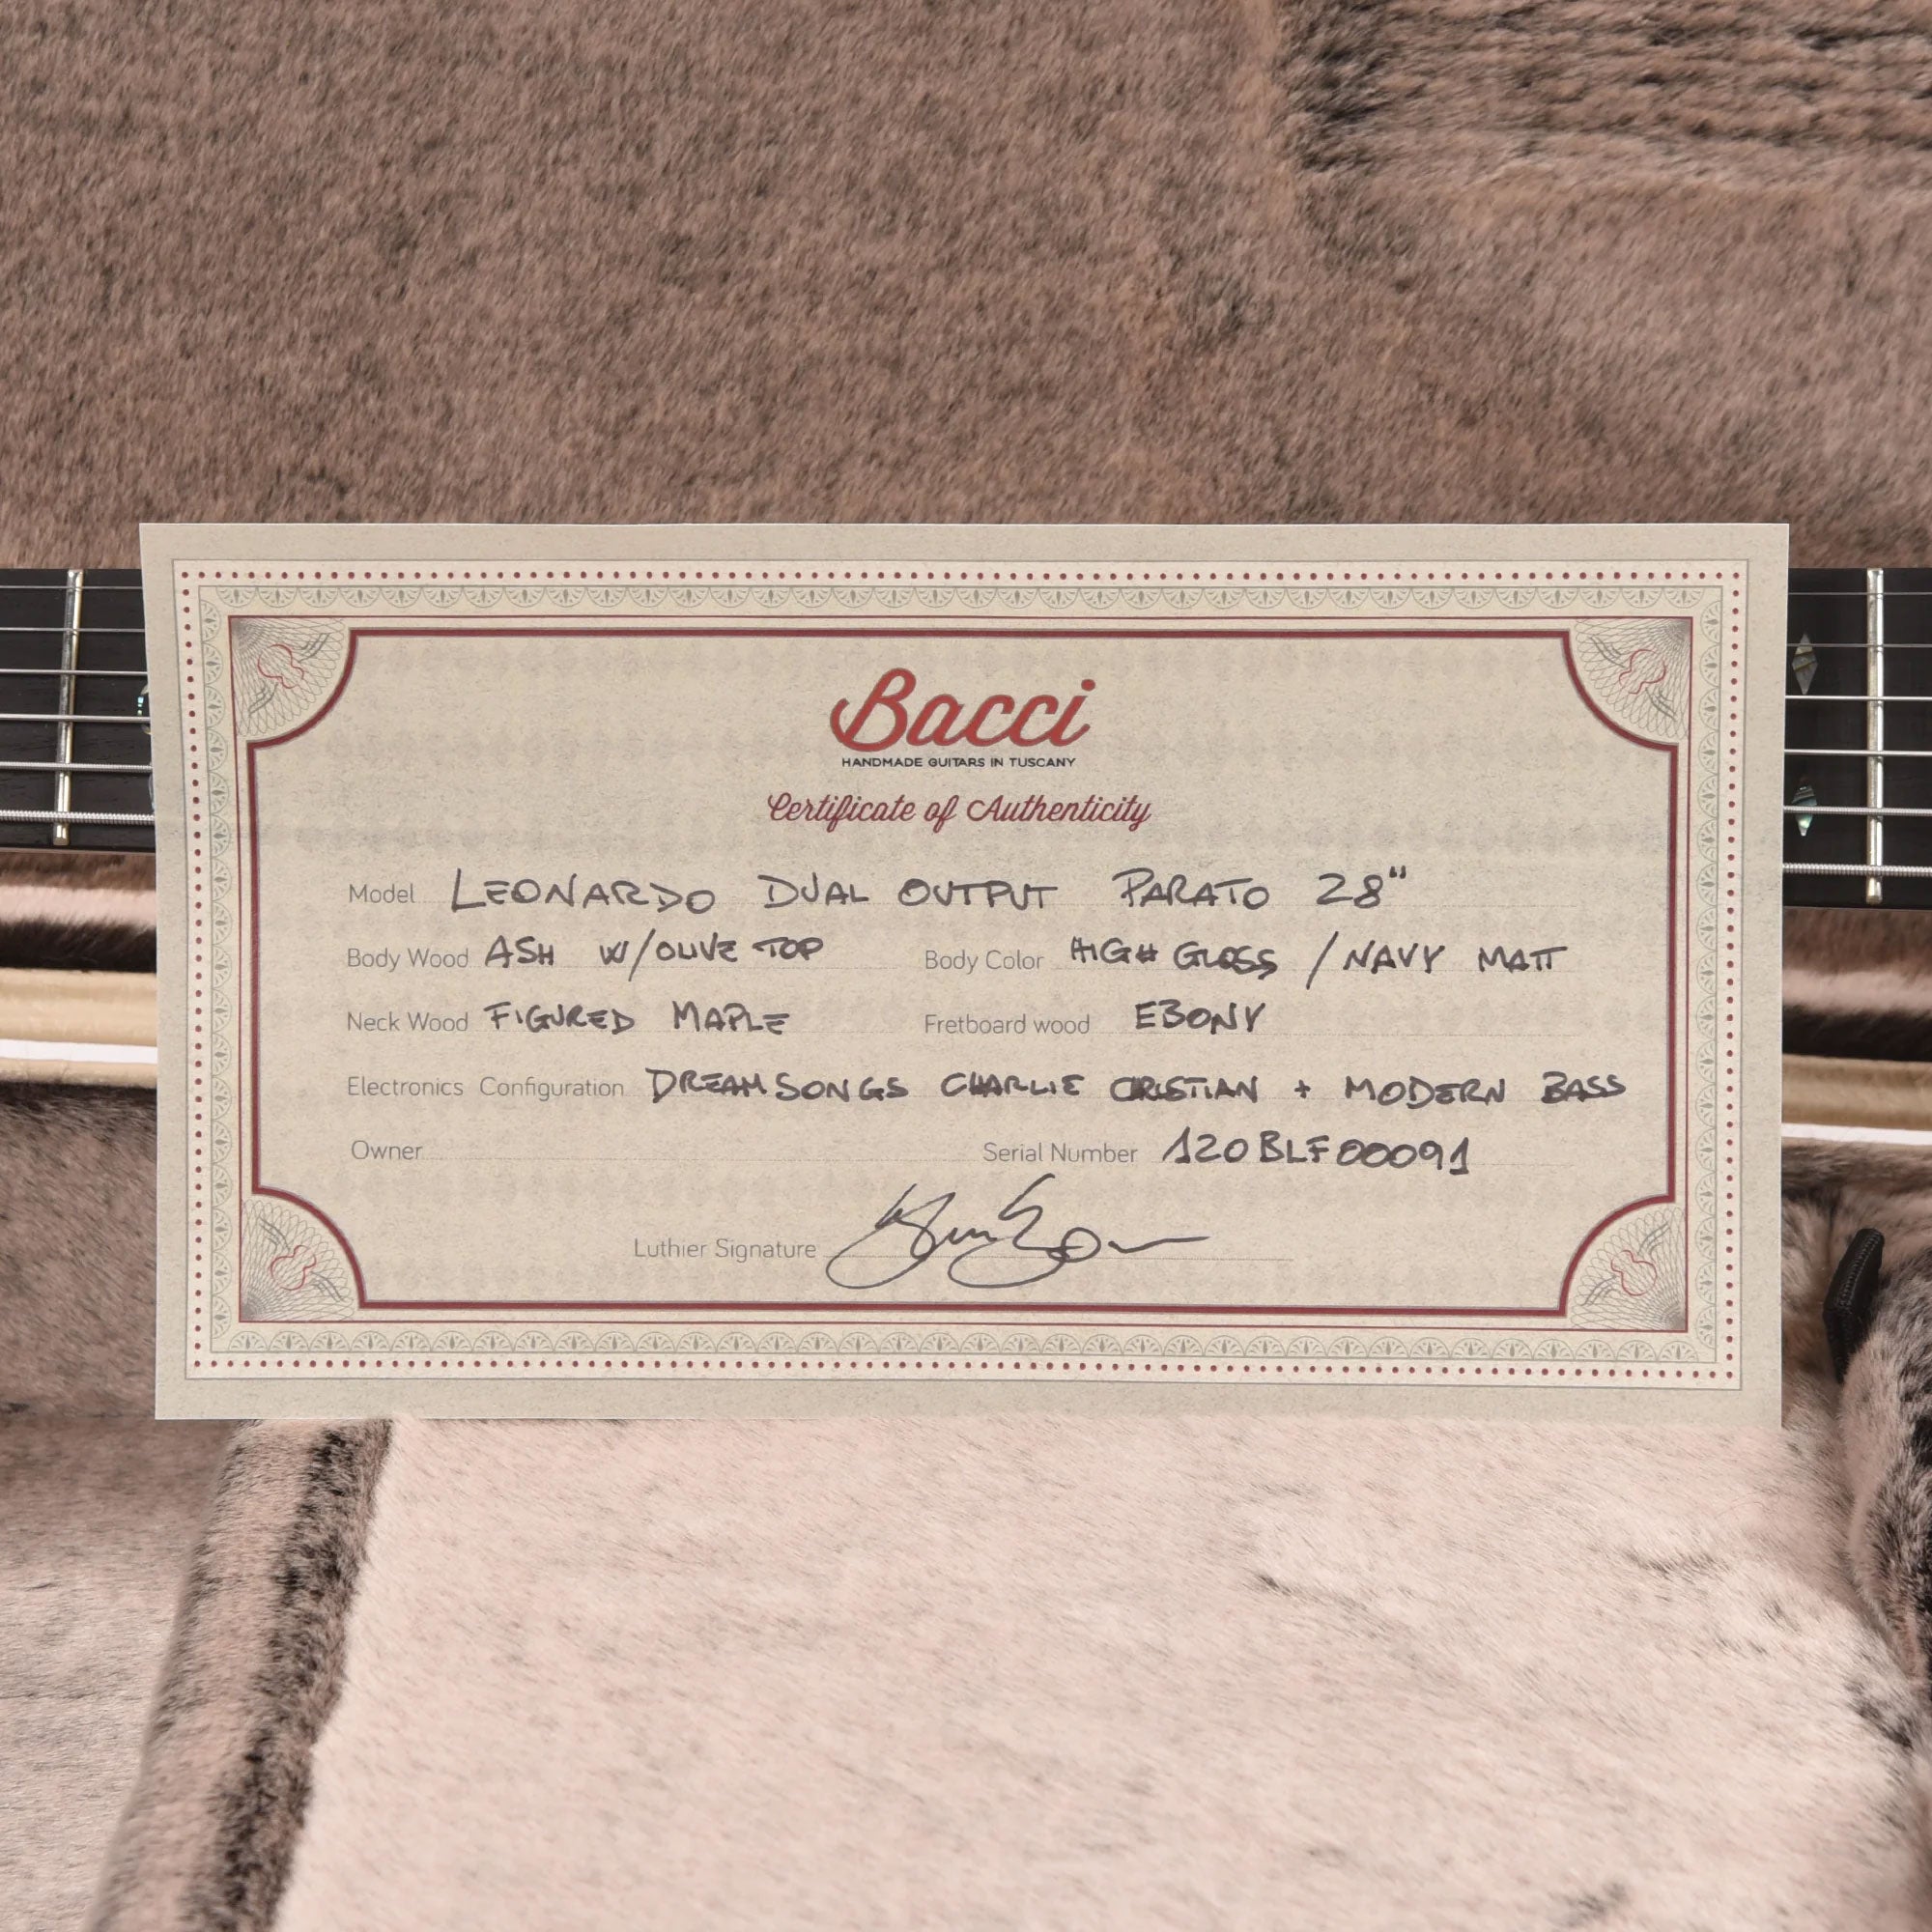 Bacci
HANDMADE GUITARS IN TUSCANY
Certificate of Authenticity
Model LEONARDO DUAL OUTPUT PARATO 28"
Body Wood ASH W/OLIVE TOP Body Color HIGH GLOSS / NAVY MATT
Neck Wood FIGURED MAPLE Fretboard wood EBONY
Electronics Configuration DREAMSONGS CHARLIE CRISTIAN + MODERN BASS
Owner Serial Number 120BLF00091
Luthier Signature